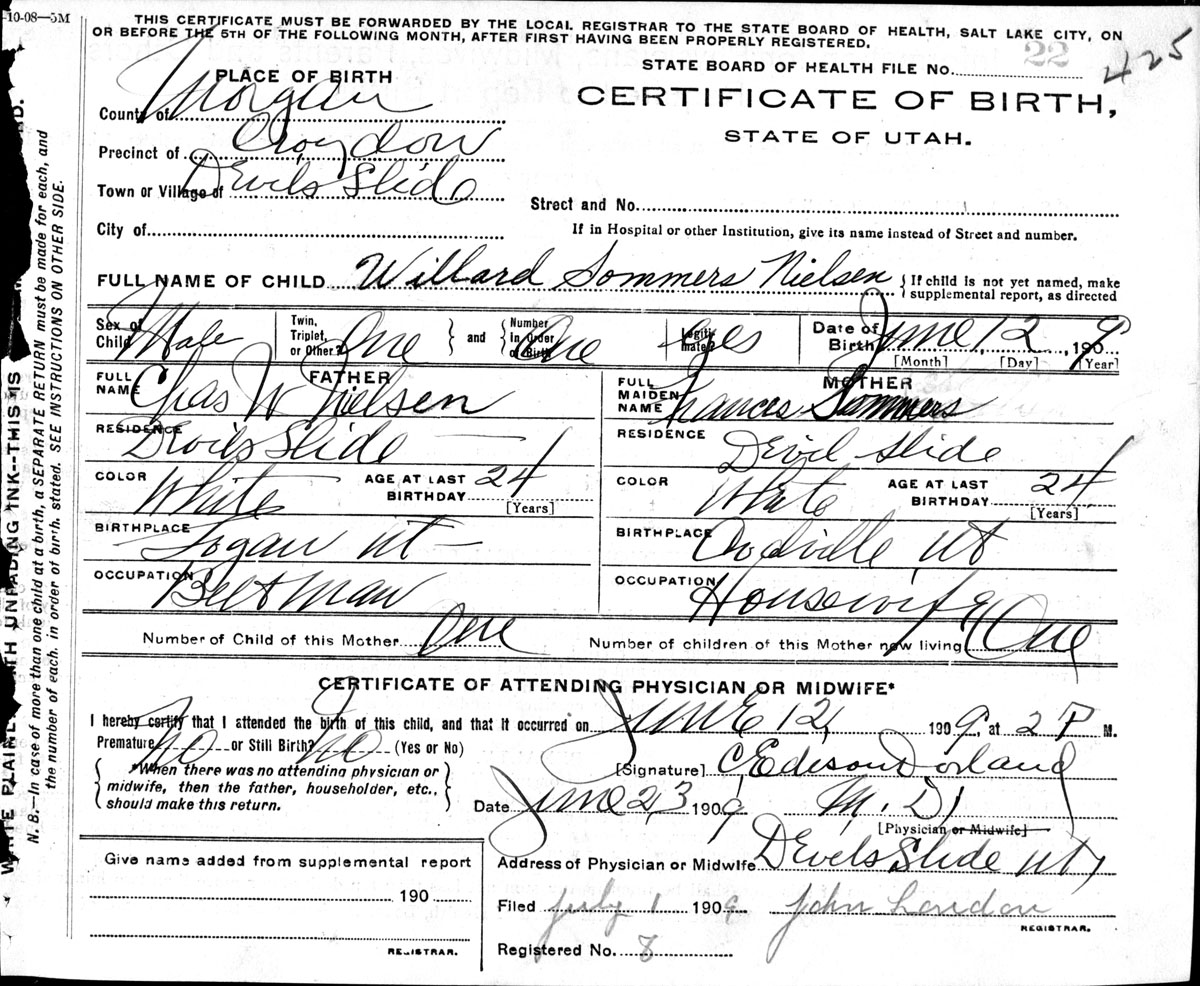 -10-08—5M
THIS CERTIFICATE MUST BE FORWARDED BY THE LOCAL REGISTRAR TO THE STATE BOARD OF HEALTH, SALT LAKE CITY, ON
OR BEFORE THE 5TH OF THE FOLLOWING MONTH, AFTER FIRST HAVING BEEN PROPERLY REGISTERED.
STATE BOARD OF HEALTH FILE NO. 22 425
CERTIFICATE OF BIRTH,
STATE OF UTAH.
PLACE OF BIRTH
County of Morgan
Precinct of Croydon
Town or Village of Devils Slide
Street and No.
City of
If in Hospital or other Institution, give its name instead of Street and number.
FULL NAME OF CHILD Willard Sommers Nielsen { If child is not yet named, make
supplemental report, as directed
Sex of Child Male Twin, Triplet, or Other? One } and { Number In Order of Birth One Legiti-mate? yes Date of Birth June, 12, 1909
[Month] [Day] [Year]
FATHER
FULL NAME Chas W Nielsen
RESIDENCE Devils Slide
COLOR White AGE AT LAST BIRTHDAY 24 [Years]
BIRTHPLACE Logan Ut
OCCUPATION Belt Man
MOTHER
FULL MAIDEN NAME Frances Sommers
RESIDENCE Devil Slide
COLOR White AGE AT LAST BIRTHDAY 24 [Years]
BIRTHPLACE Ut
OCCUPATION Housewife
Number of Child of this Mother One Number of children of this Mother now living One
CERTIFICATE OF ATTENDING PHYSICIAN OR MIDWIFE*
I hereby certify that I attended the birth of this child, and that it occurred on June 12, 1909, at 2 P M.
Premature No or Still Birth? No (Yes or No)
{ *When there was no attending physician or
midwife, then the father, householder, etc.,
should make this return. }
[Signature] C Edison Dorland
Date June 23 1909 M. D.
[Physician or Midwife]
Address of Physician or Midwife Devils Slide Ut
Filed July 1 1909 John London
REGISTRAR.
Registered No. 8
Give name added from supplemental report
190
REGISTRAR.
WRITE PLAINLY WITH UNFADING INK--THIS IS
N. B.—In case of more than one child at a birth, a SEPARATE RETURN must be made for each, and
the number of each, in order of birth, stated. SEE INSTRUCTIONS ON OTHER SIDE.